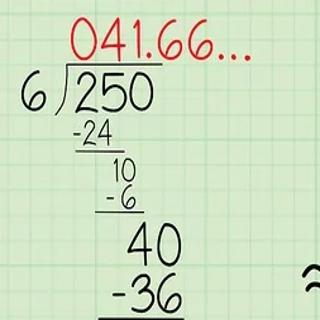 041.66...
6)250
-24
10
-6
40
-36
≈